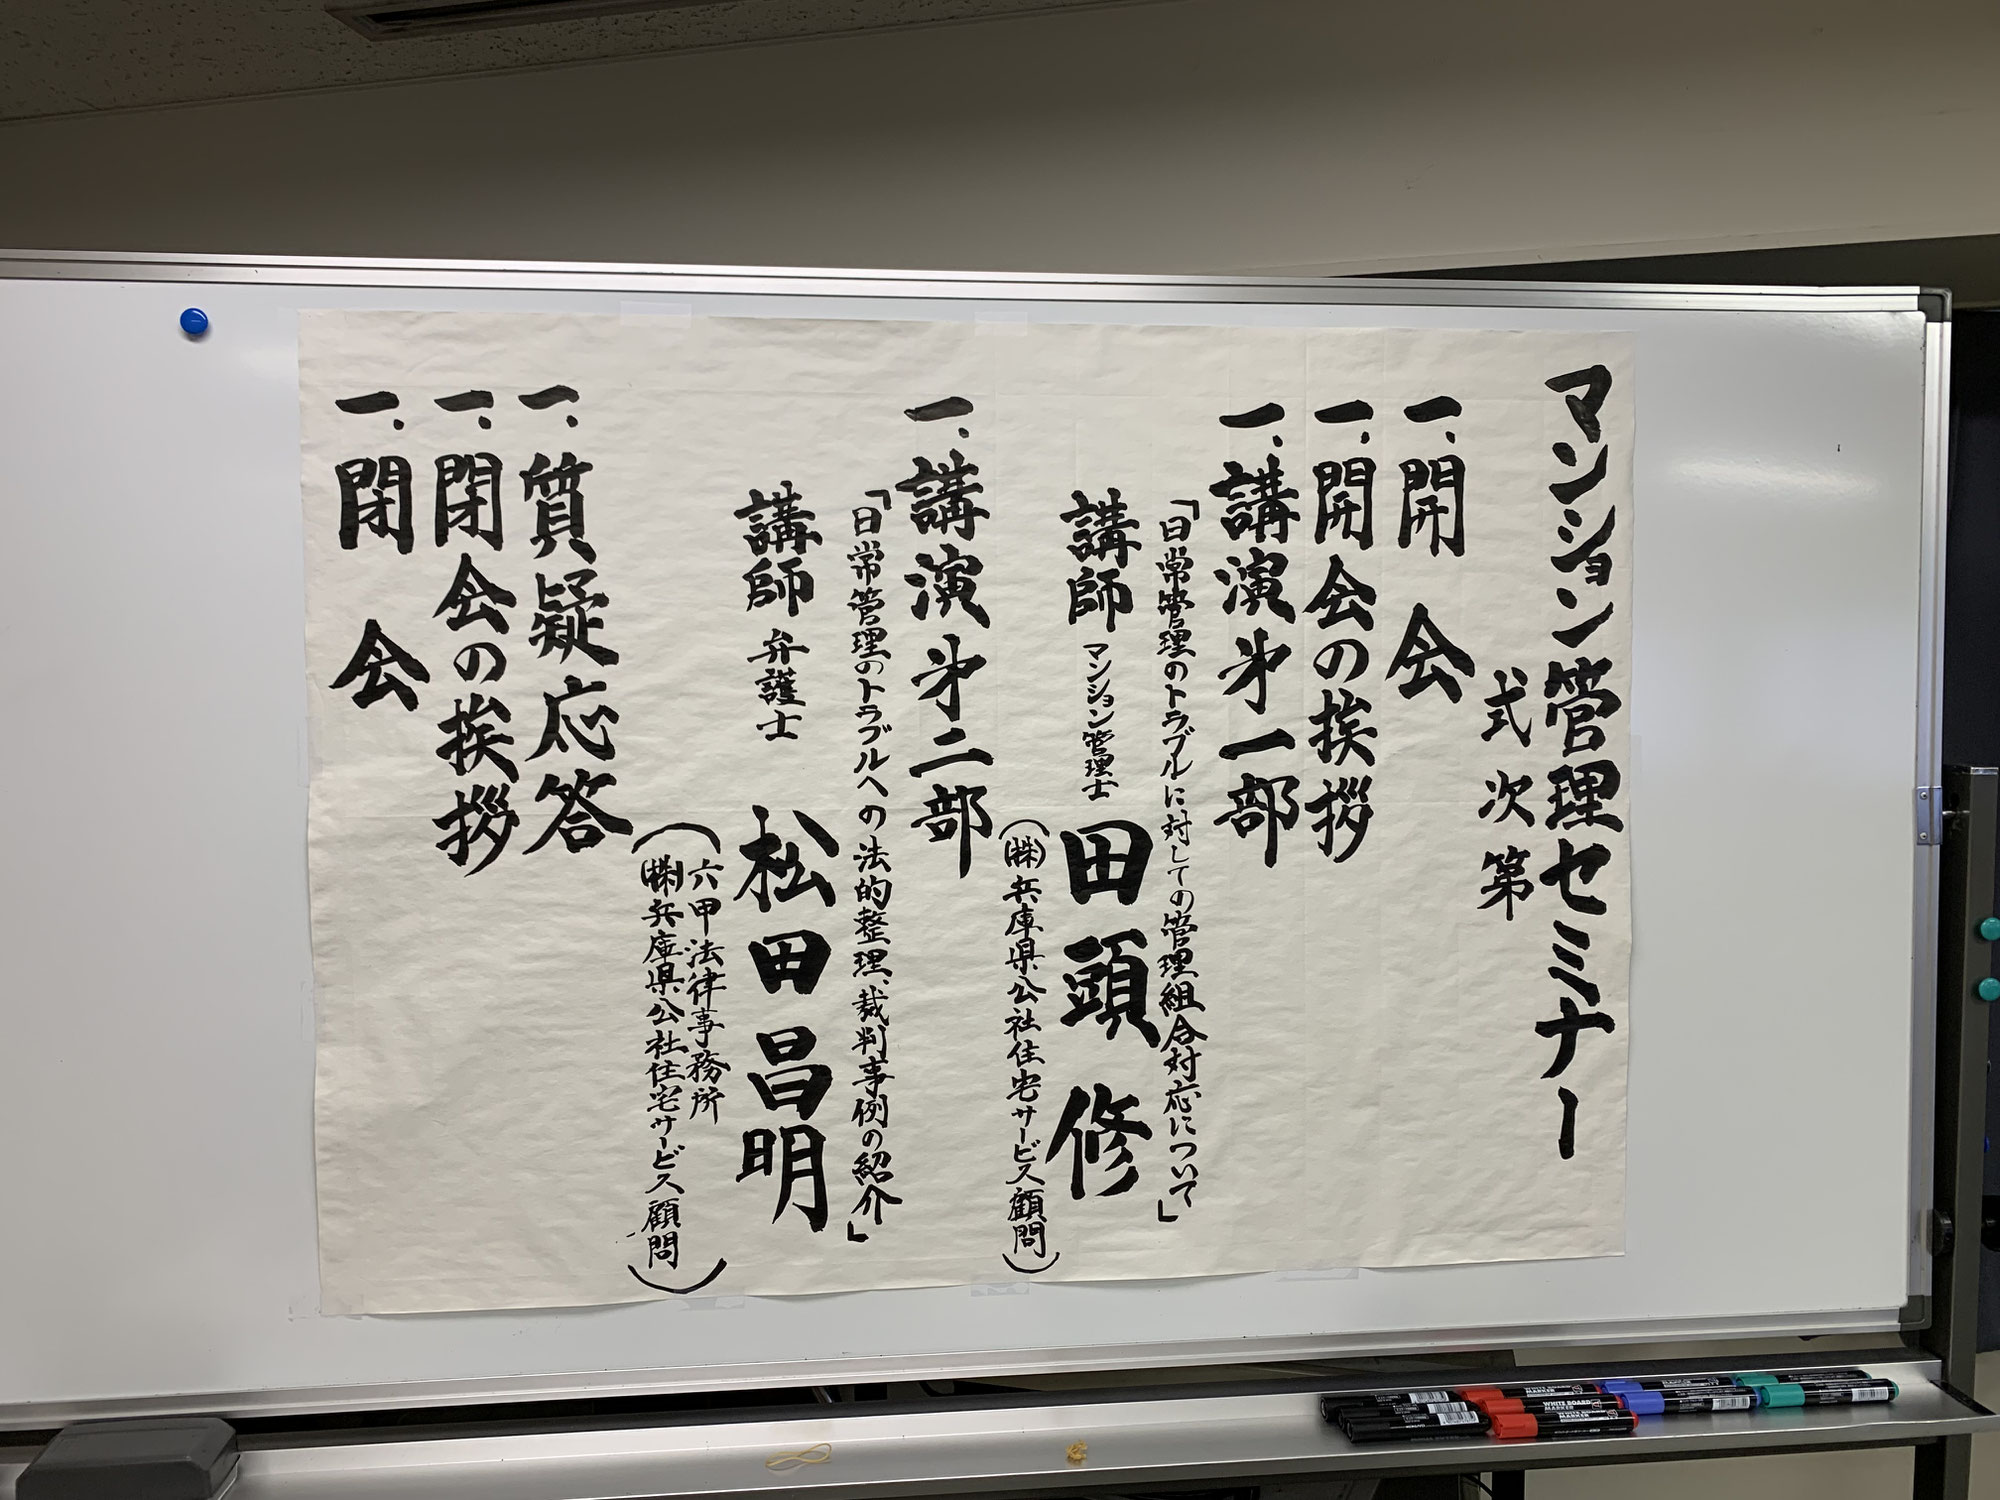 マンション管理セミナー
式次第
一、開会
一、開会の挨拶
一、講演㐧一部
「日常管理のトラブルに対しての管理組合対応について」
講師 マンション管理士 田頭 修
(㈱兵庫県公社住宅サービス顧問)
一、講演㐧二部
「日常管理のトラブルへの法的整理、裁判事例の紹介」
講師 弁護士 松田昌明
(六甲法律事務所
㈱兵庫県公社住宅サービス顧問)
一、質疑応答
一、閉会の挨拶
一、閉会
WHITE BOARD
MARKER
WHITE BOARD
MARKER